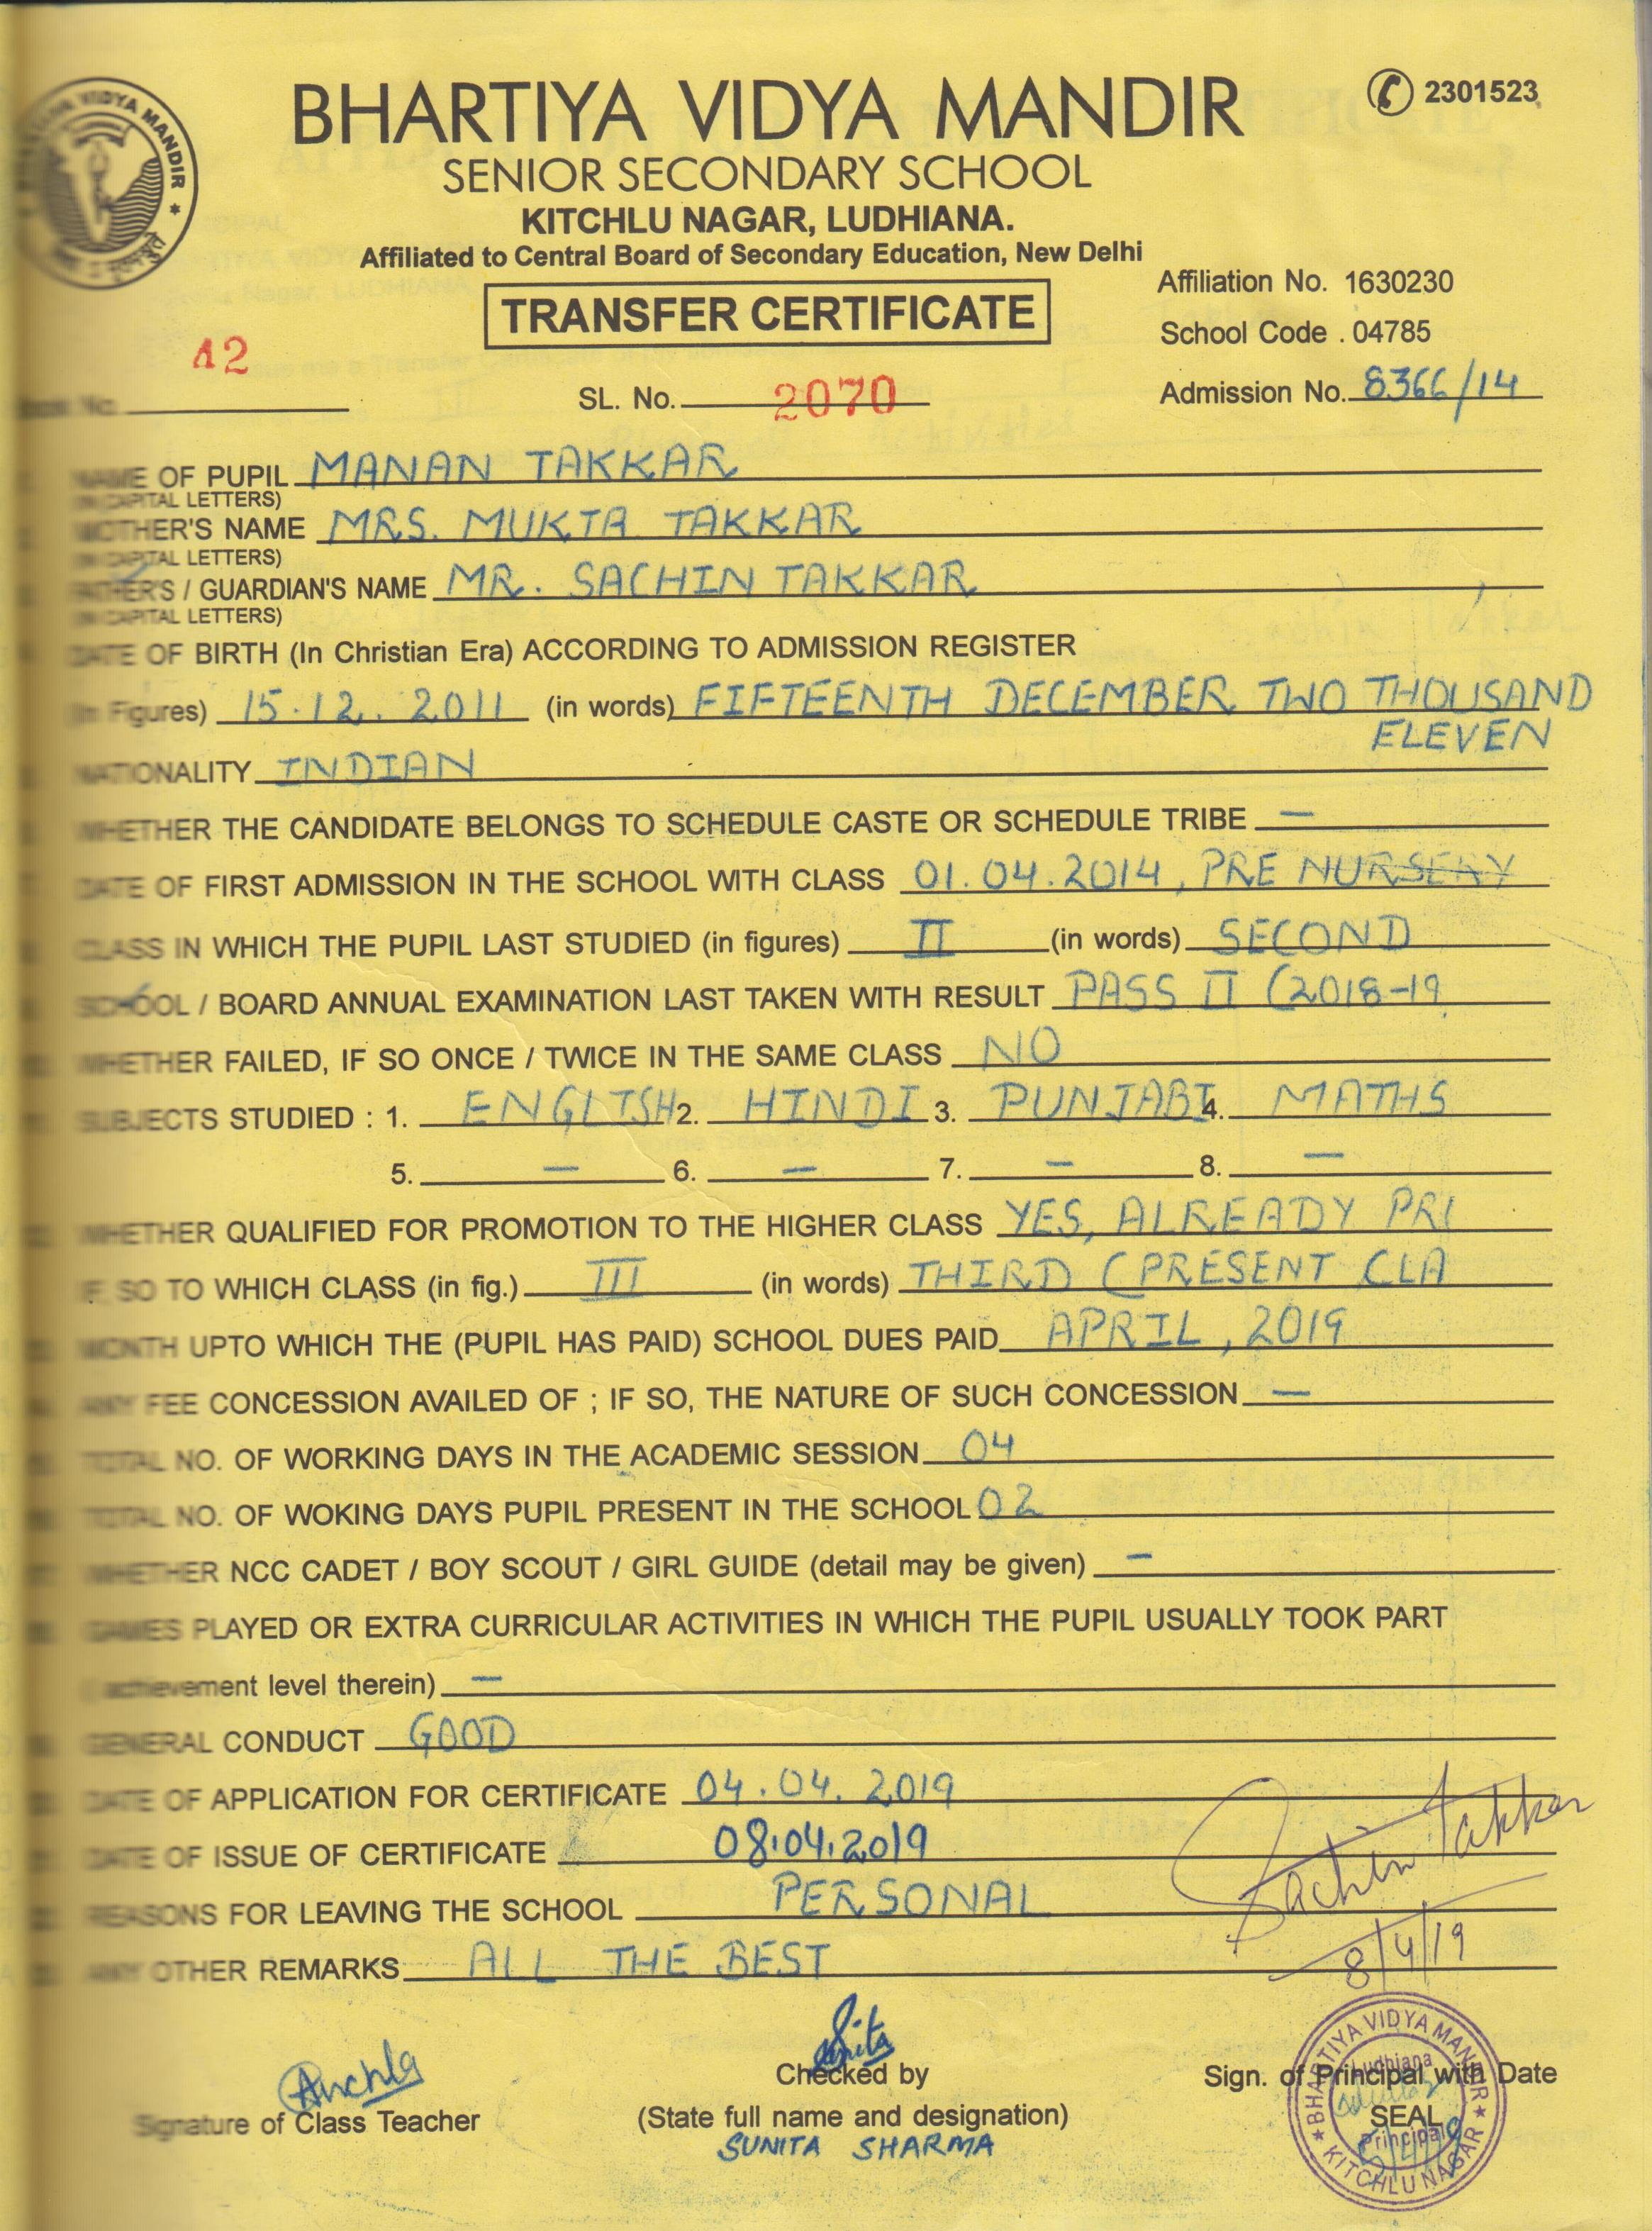 BHARTIYA VIDYA MANDIR
2301523
SENIOR SECONDARY SCHOOL
KITCHLU NAGAR, LUDHIANA.
Affiliated to Central Board of Secondary Education, New Delhi
Affiliation No. 1630230
TRANSFER CERTIFICATE
School Code . 04785
42
Book No. SL. No. 2070 Admission No. 8366/14
NAME OF PUPIL MANAN TAKKAR
(IN CAPITAL LETTERS)
MOTHER'S NAME MRS. MUKTA TAKKAR
(IN CAPITAL LETTERS)
FATHER'S / GUARDIAN'S NAME MR. SACHIN TAKKAR
(IN CAPITAL LETTERS)
DATE OF BIRTH (In Christian Era) ACCORDING TO ADMISSION REGISTER
(In Figures) 15.12.2011 (in words) FIFTEENTH DECEMBER TWO THOUSAND
ELEVEN
NATIONALITY INDIAN
WHETHER THE CANDIDATE BELONGS TO SCHEDULE CASTE OR SCHEDULE TRIBE —
DATE OF FIRST ADMISSION IN THE SCHOOL WITH CLASS 01.04.2014, PRE NURSERY
CLASS IN WHICH THE PUPIL LAST STUDIED (in figures) II (in words) SECOND
SCHOOL / BOARD ANNUAL EXAMINATION LAST TAKEN WITH RESULT PASS II (2018-19
WHETHER FAILED, IF SO ONCE / TWICE IN THE SAME CLASS NO
SUBJECTS STUDIED : 1. ENGLISH 2. HINDI 3. PUNJABI 4. MATHS
5. — 6. — 7. — 8. —
WHETHER QUALIFIED FOR PROMOTION TO THE HIGHER CLASS YES, ALREADY PRI
IF SO TO WHICH CLASS (in fig.) III (in words) THIRD (PRESENT CLA
MONTH UPTO WHICH THE (PUPIL HAS PAID) SCHOOL DUES PAID APRIL, 2019
ANY FEE CONCESSION AVAILED OF ; IF SO, THE NATURE OF SUCH CONCESSION —
TOTAL NO. OF WORKING DAYS IN THE ACADEMIC SESSION 04
TOTAL NO. OF WOKING DAYS PUPIL PRESENT IN THE SCHOOL 02
WHETHER NCC CADET / BOY SCOUT / GIRL GUIDE (detail may be given) —
GAMES PLAYED OR EXTRA CURRICULAR ACTIVITIES IN WHICH THE PUPIL USUALLY TOOK PART
(achievement level therein) —
GENERAL CONDUCT GOOD
DATE OF APPLICATION FOR CERTIFICATE 04.04.2019
DATE OF ISSUE OF CERTIFICATE 08.04.2019
Sachin Takkar
REASONS FOR LEAVING THE SCHOOL PERSONAL
8/4/19
ANY OTHER REMARKS ALL THE BEST
Sunita
Checked by
Sign. of Principal with Date
Signature of Class Teacher
(State full name and designation)
SEAL
SUNITA SHARMA
BHARTIYA VIDYA MANDIR
Ludhiana
Principal
KITCHLU NAGAR